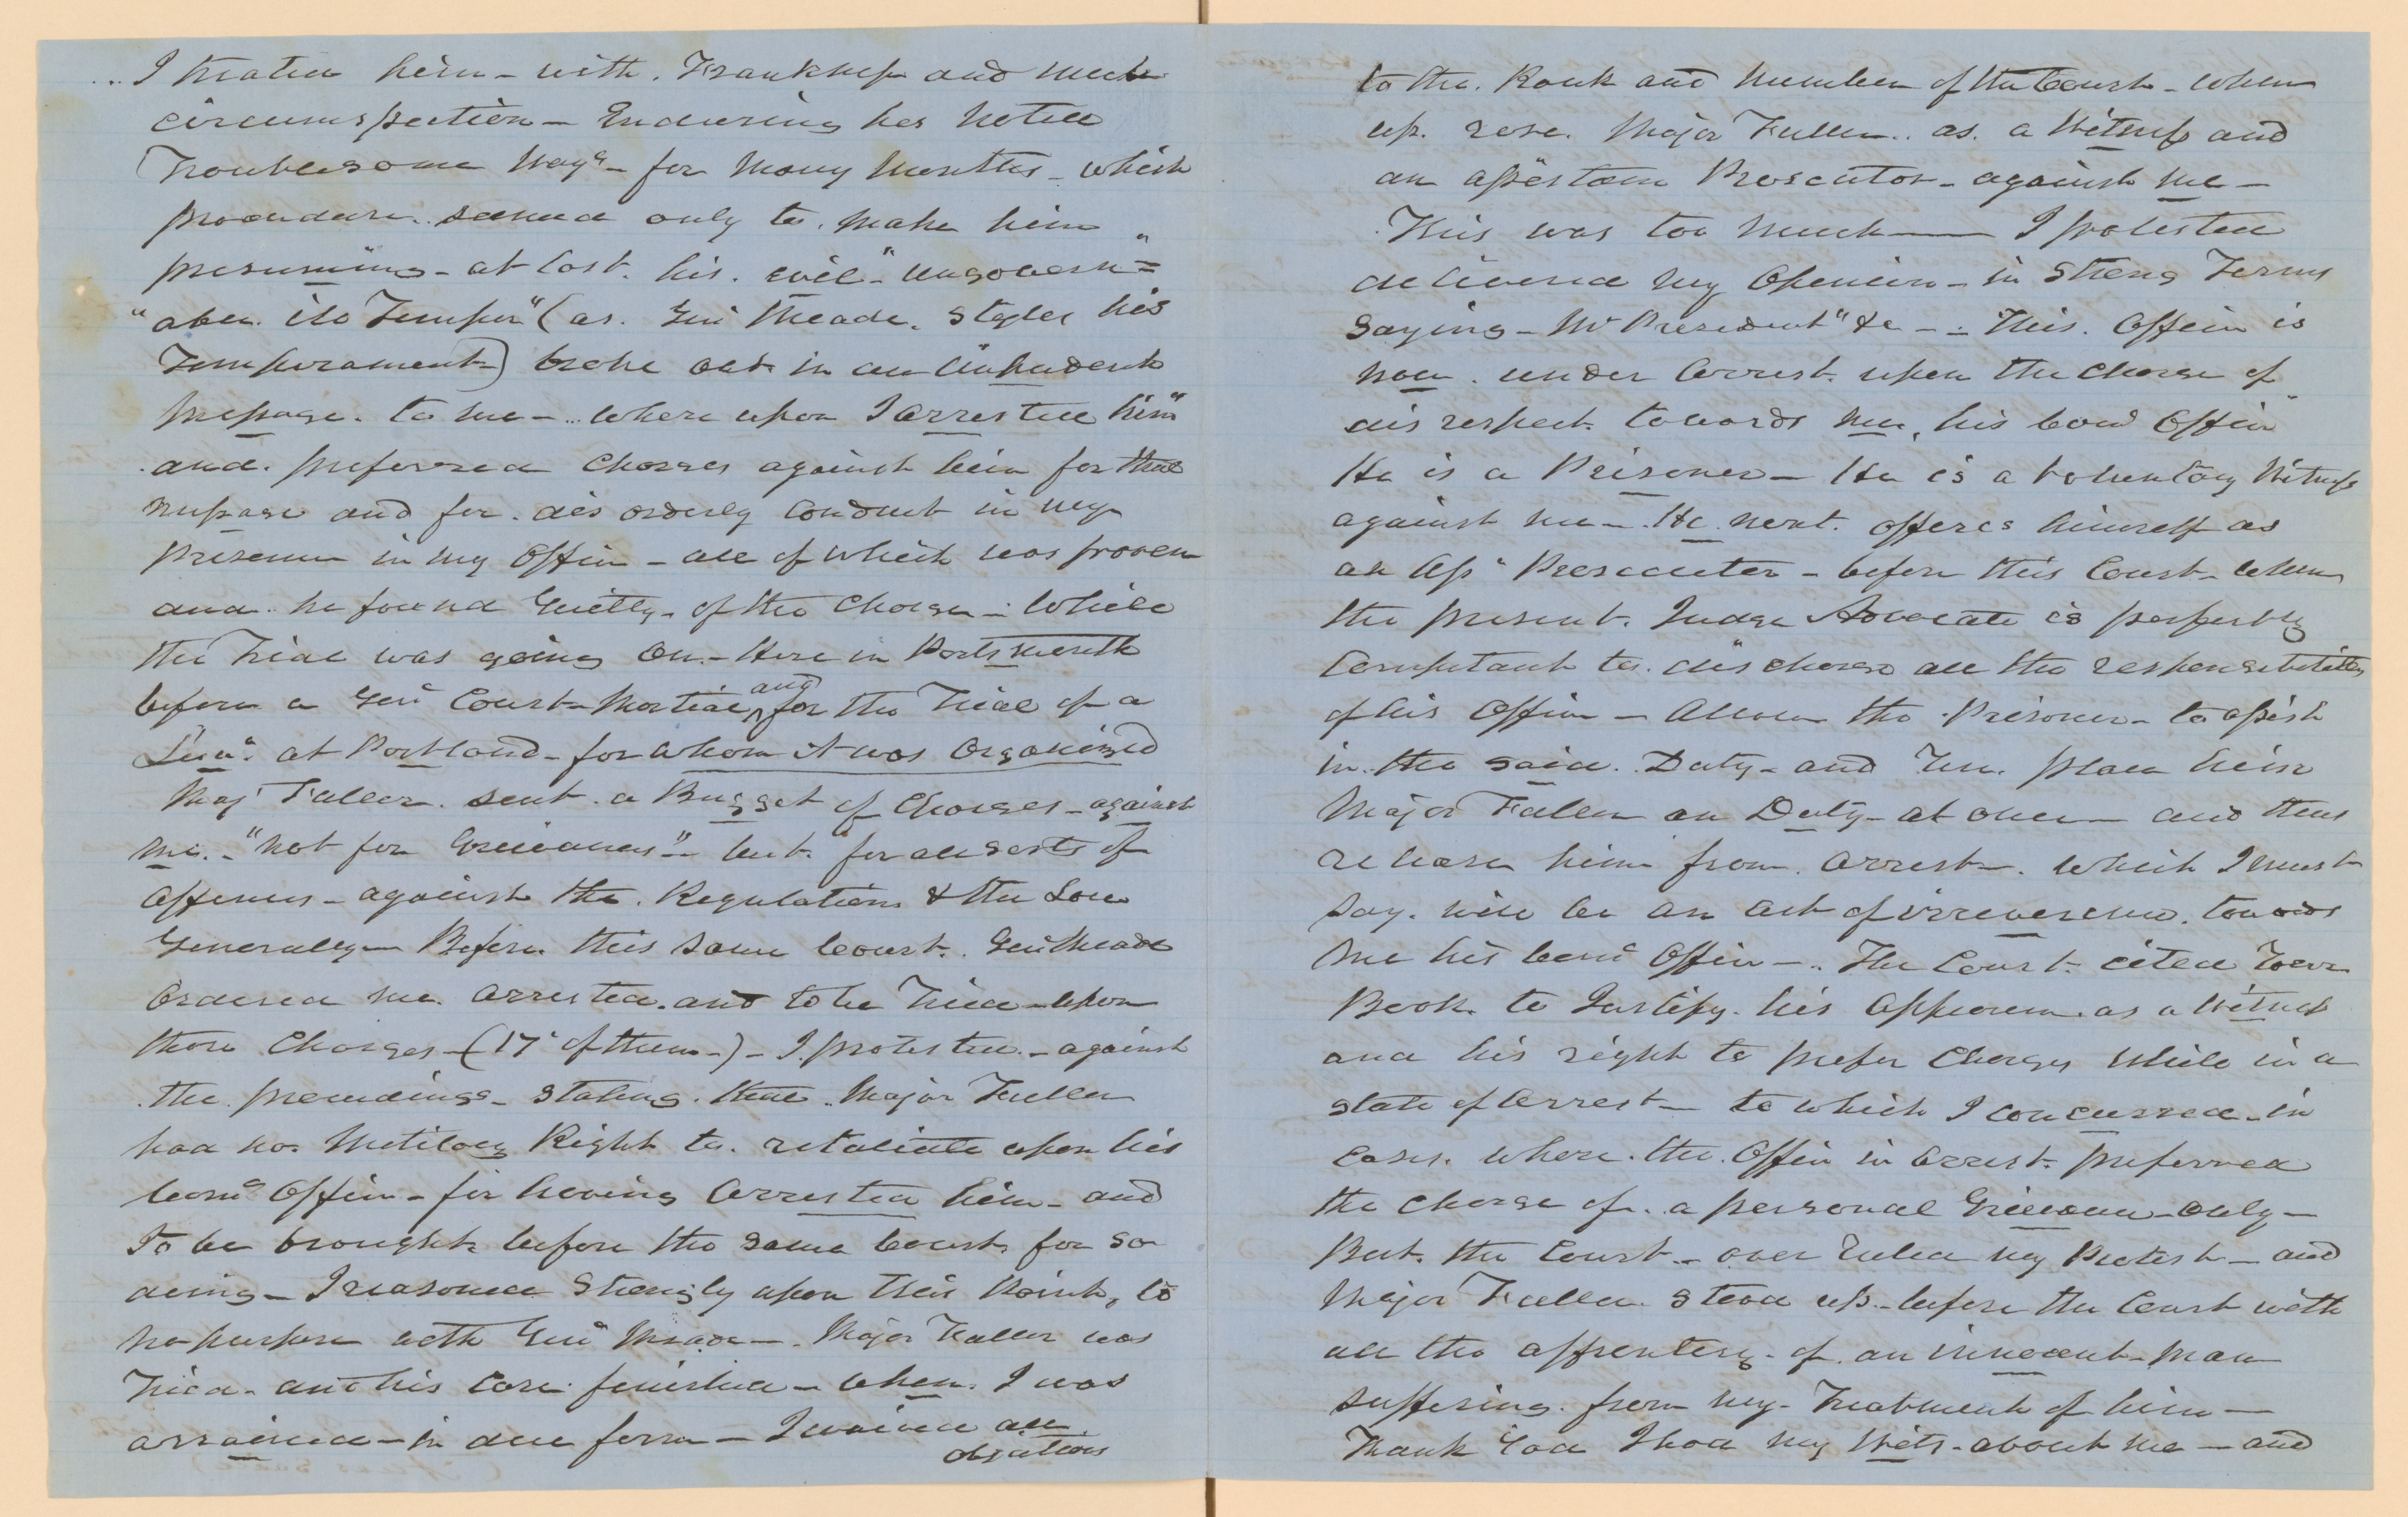 I treated him - with. Frankness and much
circumspection - Enduring his noted
Troublesome Ways - for Many Months - which
procedure. seemed only to. make him
presuming - at last. his. evil - "ungovern=
"able ill Temper" (as. Genl Meade. styles his
Temperament) broke out in an impudent
message. to me - .. where upon I arrested him"
and. preferred Charges against him for that
message and for. disorderly Conduct in my
presence in my Office - all of which was proven
and. he found Guilty - of the Charge - While
the Trial was going On. - Here in Portsmouth
before a Genl Court-Martial and for the Trial of a
Lieut. at Portland - for whom it was Organized
Maj Fuller. sent. a Budget of Charges - against
me. - "not for Grievances" - but. for all sorts of
offences - against the. Regulations & the Law
Generally - Before. this same Court. Genl Meade
Ordered me. arrested. and to be Tried - upon
those Charges - (17 of them -) - I protested. - against
the. proceedings - stating. that. Major Fuller
had no. Military Right to. retaliate upon his
Comg Officer - for having Arrested him - and
to be brought before the same Court, for so
doing - I reasoned Strongly upon this Point, to
no purpose with Genl Meade - . Major Fuller was
Tried - and his Case finished - when. I was
arrained - in due form - I waived all
objections
to the. Rank and Number of the Court - when
up. rose. Major Fuller.. as. a Witness and
an assistant Prosecutor - against me -
This was too much — I protested
delivered my Opinion - in Strong Terms
Saying - Mr President" &c - - This. Officer is
now. under Arrest. upon the Charge of
disrespect. towards me, his Comd Officer"
He is a Prisoner - He is a Voluntary Witness
against me - . He. next. offers himself as
an Ass. Prosecuter - before this Court - when
the present. Judge Advocate is perfectly
Competant to. discharge all the responsibilities
of his Office - Allow the Prisoner - to assist
in. the said. Duty - and You. place him
Major Fuller on Duty - at once - and thus
release him from. arrest -. which I must
say. will be an act of irreverence. towards
me his Comd Officer - .. The Court. cited Law
Book. to Justify. his Appearence. as a Witness
and his right to prefer Charges while in a
state of Arrest - to which I concurred - in
Cases. where. the. Officer in Arrest. preferred
the Charge of. a personal Grievance - only -
But. the Court. - over ruled my Protest - and
Major Fuller. stood up. - before the Court with
all the affrontery. of. an innocent - man
suffering. from my - Treatment of him -
Thank God I had my Wits - about me - and